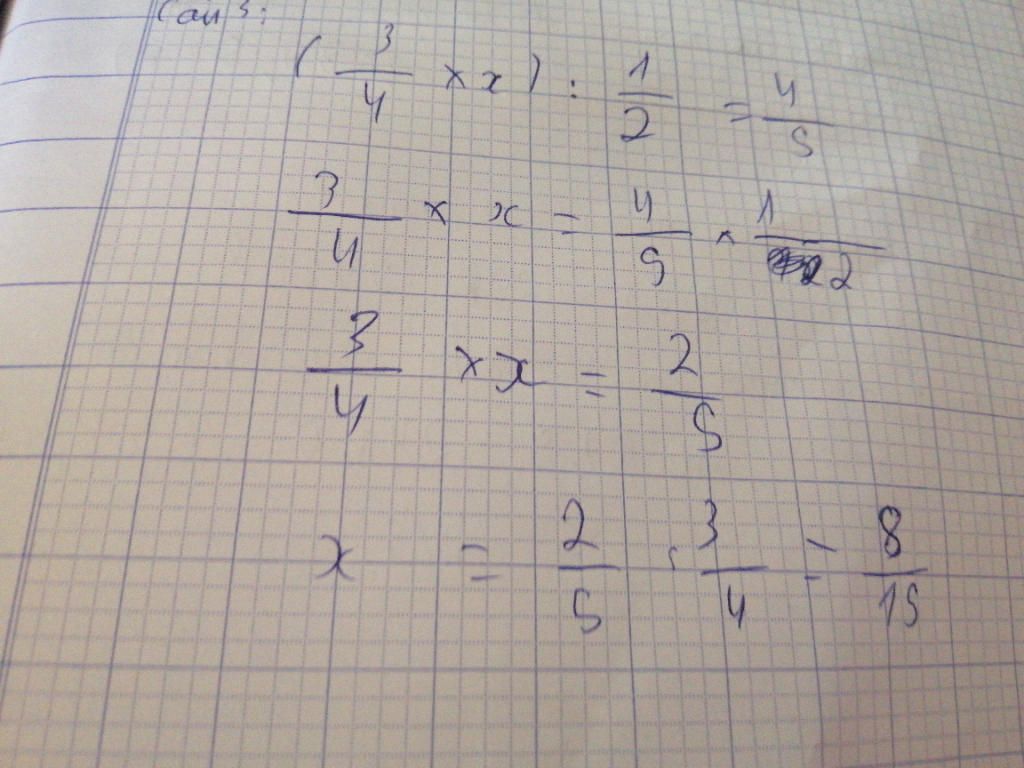 Câu 3:
( 3/4 × x ) : 1/2 = 4/5
3/4 × x = 4/5 × 1/2
3/4 × x = 2/5
x = 2/5 : 3/4 = 8/15